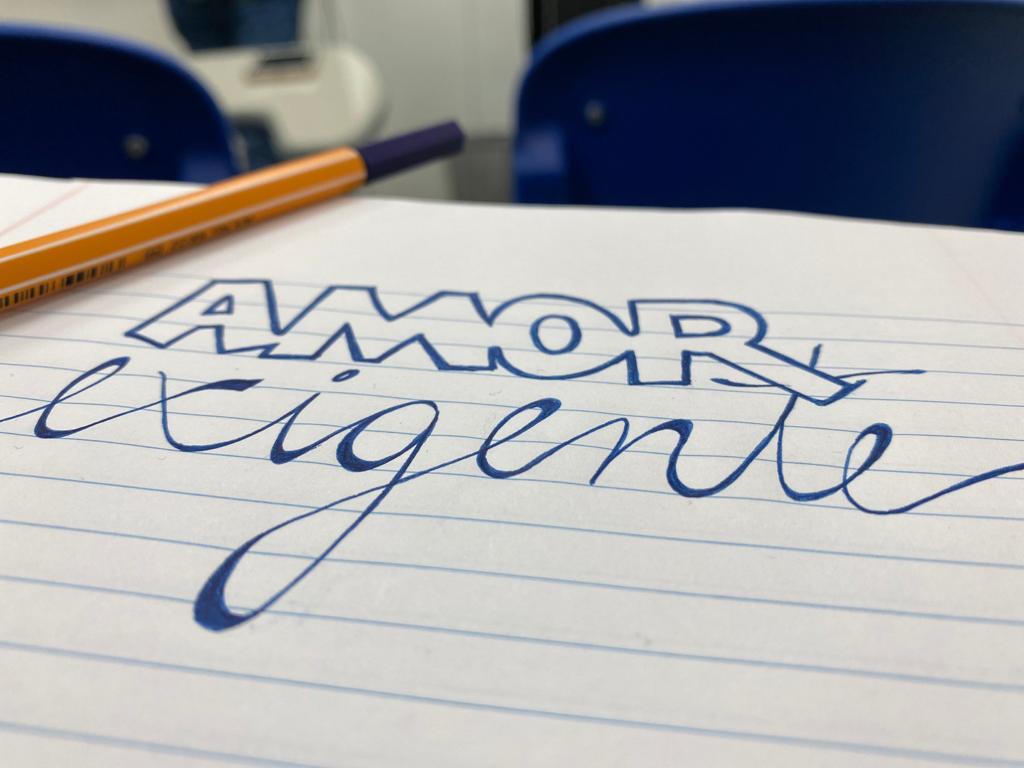 AMOR
exigente